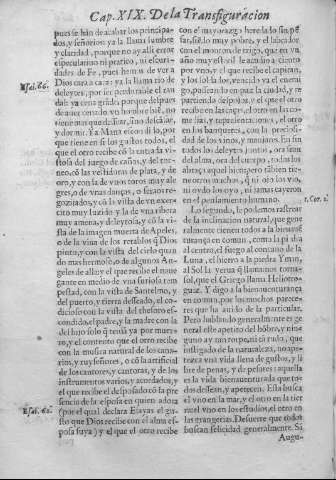 Cap. XIX. De la Transfiguracion
pues se han de acabar los principa-
dos, y señorios: ya la llama lumbre
y claridad, porque no ay alli error
especulatiuo ni pratico, ni escuri-
dades de Fe, pues han de ver a
Dios cara a cara: ya la llama rio de
deleytes, por ser perdurable el cau
dal: ya cena grãde, porque despues
de auer cenado vn hombre biẽ, no
tiene mas que dessear, sino descãsar,
y dormir. Ya Mana escondido, por
que tienen en si los gustos todos, el
que el otro recibe cõ la tanta vi-
stosa del juego de cañas, y del tor-
neo, cõ las vestiduras de plata, y de
oro, y con la de vnos toros muy ale
gres, o de vnas danças, o fiestas re-
gozijadas, y cõ la vista de vn exer-
cito muy luzido y la de vna ribera
muy amena, y deleytosa, y cõ la vi-
sta de la imagen muerta de Apeles,
o de la viua de los retablos q̃ Dios
pinto, y con la vista del cielo quan
do mas hermoso, o de algunos An-
geles de alla: y el que recibe el naue
gante en medio de vna furiosa tem
pestad, con la vista de Santelmo, y
del puerto, y tierra desseado, el co-
dicioso con la vista del thesoro es-
condido, el padre, y la madre con la
del hijo solo q̃ tenia ya por muer-
to, y el contento que el otro recibe
con la musica natural de los cana-
rios, y ruyseñores, o cõ la artificial
de los cantores, y cantoras, y de los
instrumentos varios, y acordados, y
el que recibe el desposado cõ la pre
sencia de la esposa en quien adora
(por el qual declara Esayas el gu-
sto que Dios recibe con el alma es-
posa suya) y el que el otro recibe
con el mayorazgo heredado sin pẽ
sar, siẽdo muy pobre, y el labrador
con el monton de trigo, que en vn
año muy esteril le acudio a ciento
por vno, y el que recibe el capitan,
y los soldados, vencido ya el enemi
go, pusiendo en paz la ciudad, y re
partiendo despojos, y el que el otro
recibe en la caça, el otro en las co-
medias, y representaciones, el otro
en los banquetes, con la preciosi-
dad de los vinos, y manjares. En fin
todos los deleytes juntos, ora sean
del alma, ora del cuerpo, todos los
abraça aquel sin numero sabor: tiene
otros muchos, q̃ ni ojo los vio,
ni oydo los oyo, ni jamas cayeron
en el pensamiento humano.
Lo segundo, se podemos rastrear
de la inclinacion natural, que gene
ralmente tienen todos a la bienauẽ
turança en comun, como la piedra
al centro, el fuego al concauo de la
Luna, el hierro a la piedra Yman,
al Sol la yerua q̃ llamamos torna-
sol, que el Griego llama Heliotro-
pia. Y digo a la bienauenturança
en comun, por los muchos parece-
res que ha auido de la particular.
Pero hablando generalmente es ge
neral este apetito del hõbre, y nin-
guno ay tan torpe, ni tã rudo, que
instigado de la naturaleza, no ape-
tezca vna vida llena de gustos, y li
bre de penas, y de pesares: aquella
es la vida bienauenturada que to-
dos dessean, y apetecen. Esta busca
el vno en la mar, y el otro en la tier
ra: el vno en los estudios, el otro en
las grangerias. De suerte que todos
buscan felicidad generalmente. Sã
Augu-
Esai. 66.
Esai. 62.
1. Cor. 2.